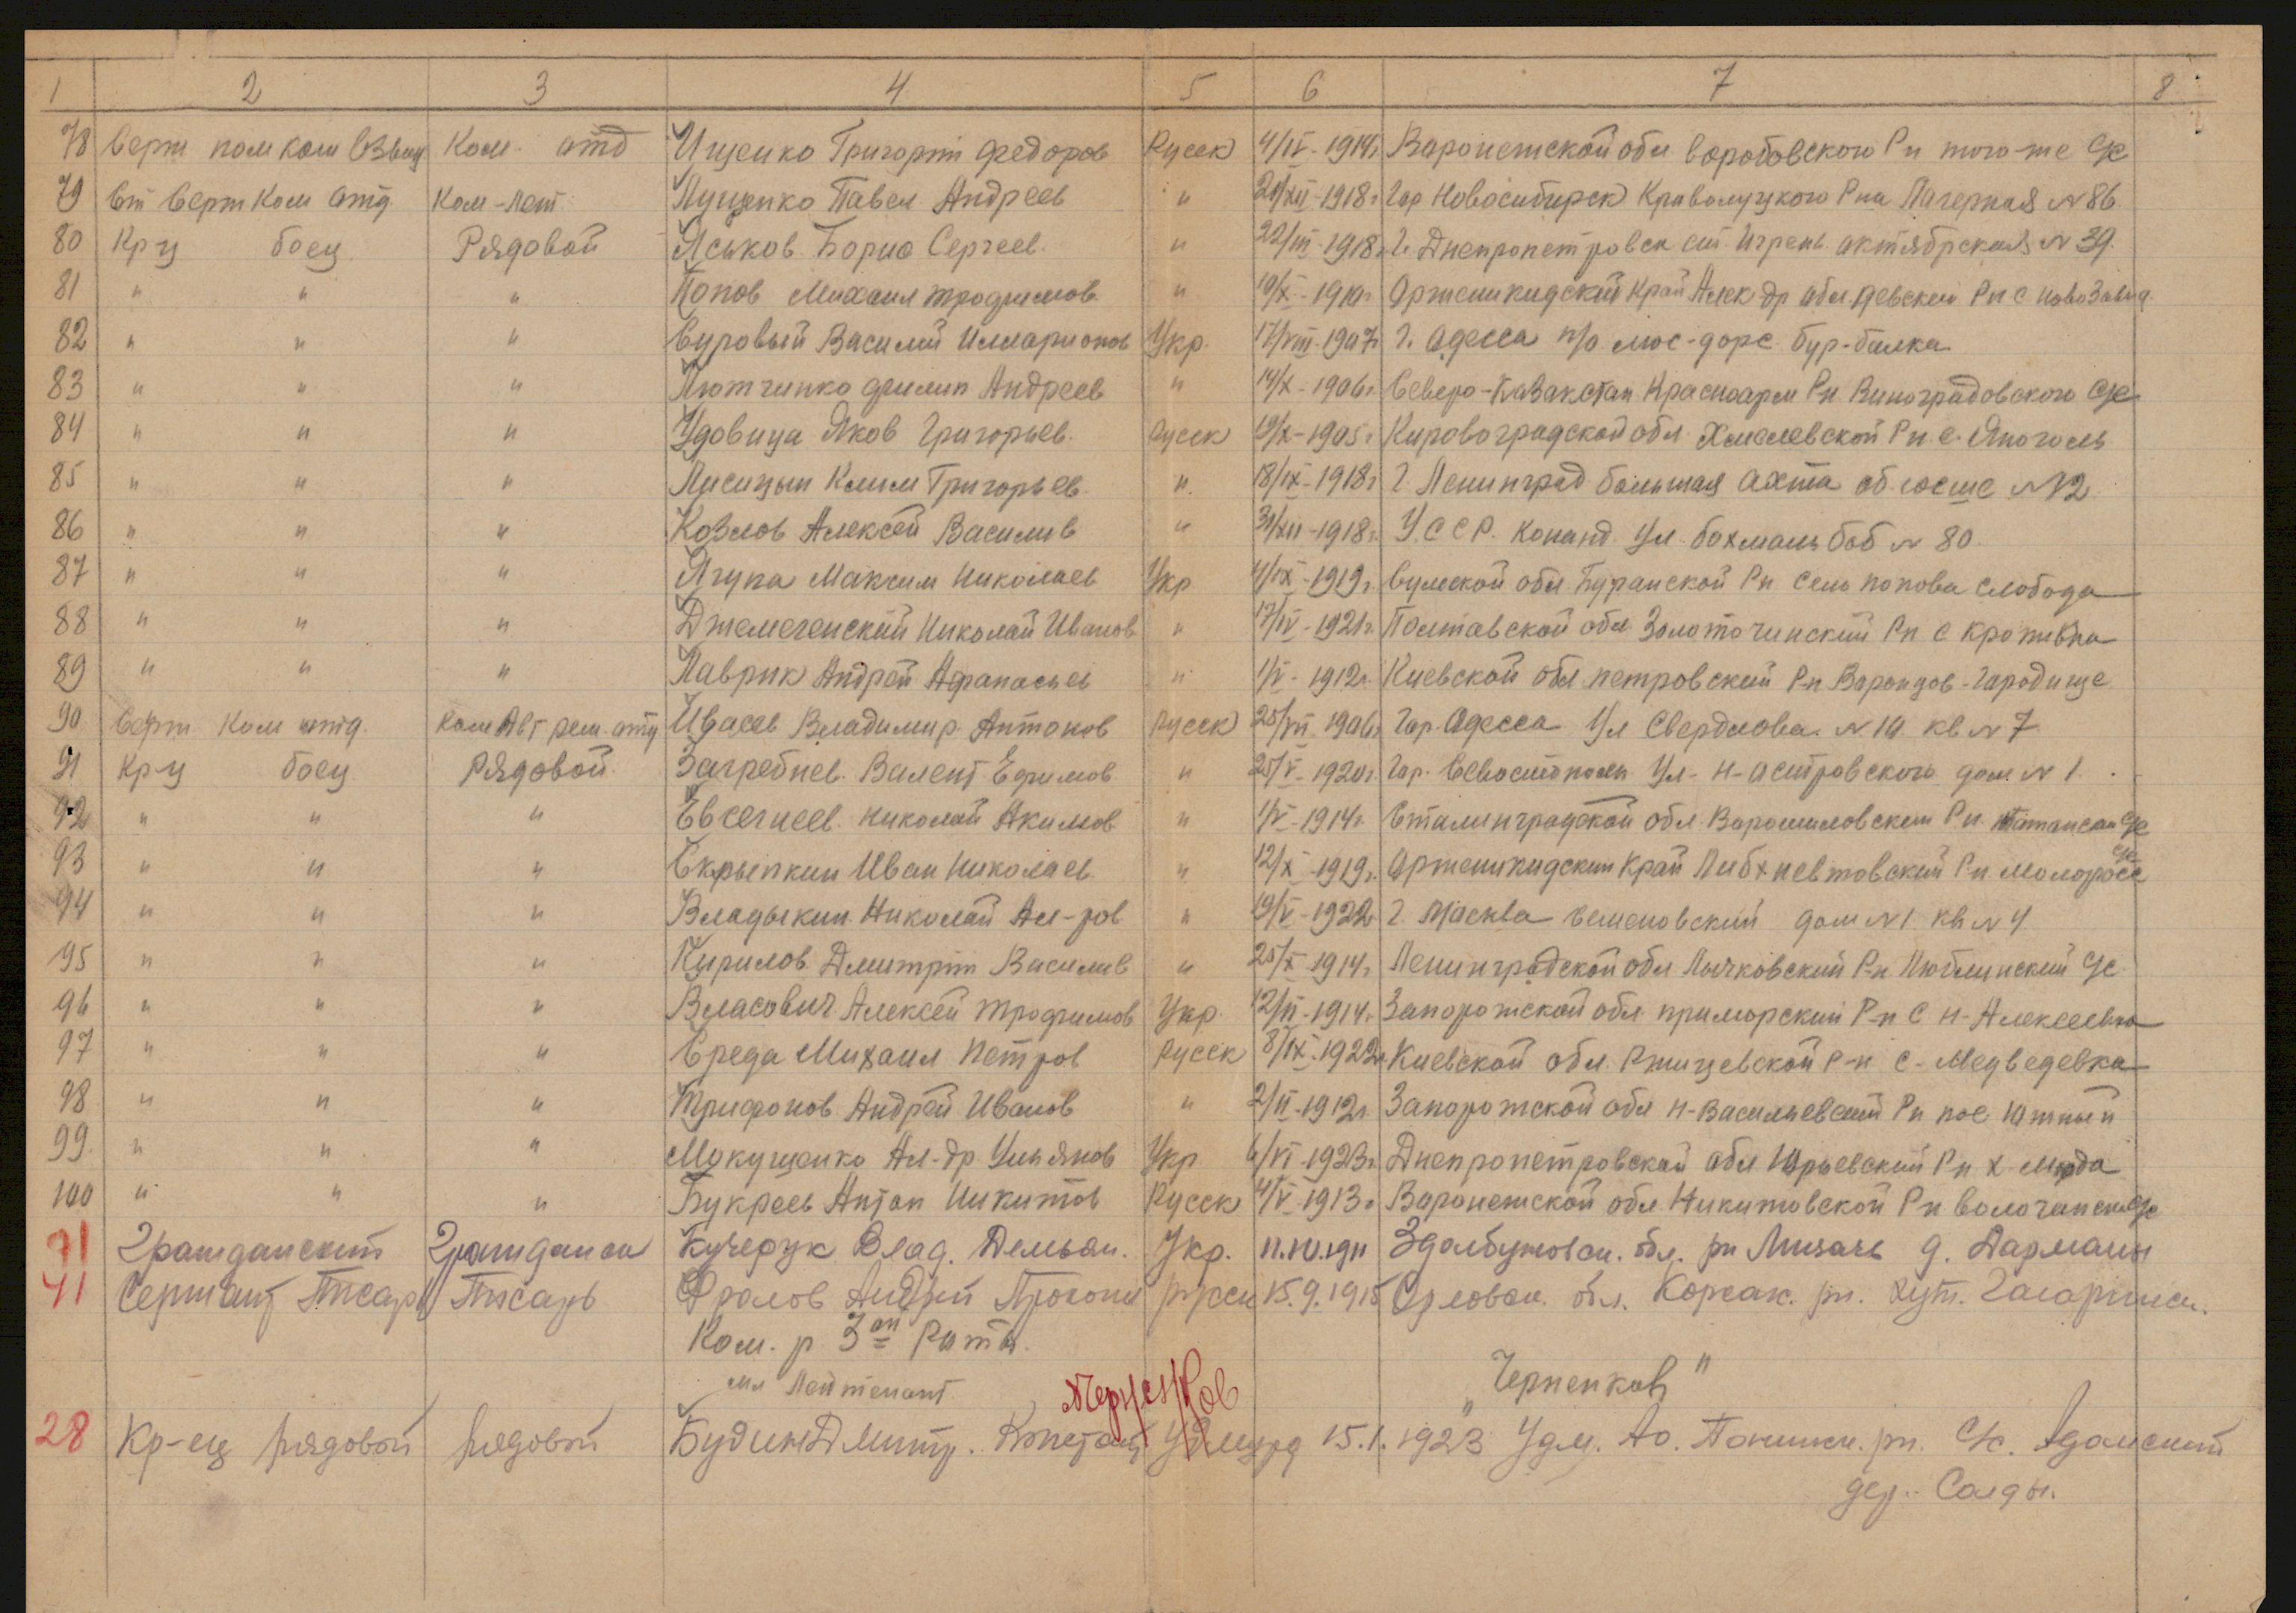 1 2 3 4 5 6 7 8
78 Серж пом ком взвод Ком. отд Ищенко Григорий Федоров Русск 4/IV-1914г. Варонежской обл Воробовского Рн того-же С/с
79 Ст Серж Ком отд. Ком-лет. Луценко Павел Андреев " 20/XII-1918г. Гор Новосибирск Р-на Пагерная N 86.
80 Кр-ц боец Рядовой Яськов Борис Сергеев. " 22/III-1918г. г. Днепропетровск ст. Игрень актябрская N 39.
81 " " " Попов Михаил трофимов. " 10/X-1910г. Орженикидский Край Алек-др обл. Рн с
82 " " " Суровый Василий Илларионов Укр. 17/VIII-1907г г. Адесса п/о люс-дорс бур-балка
83 " " " Лютченко филип Андреев " 14/X-1906г. Северо-Казакстан Красноарм Рн Виноградовского С/с
84 " " " Удовица Яков Григорьев. Русск 19/X-1905г. Кировоградской обл. Хмелевской Рн. с.
85 " " " Лисицын Клим Григорьев. " 18/IX-1918г г. Ленинград большая ахта N 12
86 " " " Козлов Алексей Василив " 30/XII-1918г. У.С.С.Р. Конанд. Ул. N 80
87 " " " Ягупа Максим Николаев Укр 4/IX-1919г. Сумской обл. Буранской Рн село попова слобода
88 " " " Джемегенский Николай Иванов " 17/IV-1921г. Полтавской обл Золоточинский Рн с кропивна
89 " " " Лаврик Андрей Афанасьев " 1/V-1912г. Киевской обл петровский Р-н Варонцов-Гародище
90 Серж Ком отд. Ком Авт рем. отд Ивасев Владимир Антонов Русск 25/VII 1906г. Гор. Адесса Ул Свердлова. N 10 кв N 7
91 Кр-ц боец Рядовой Загребнев. Валент Ефимов " 25/V-1920г. Гор. Севостополь Ул- Н-астровского дом. N 1.
92 " " " Евсегнеев. николай Акимов " 1/V-1914г. Сталинградской обл. Варошиловский Рн. С/с
93 " " " Скрыпкин Иван Николаев. " 12/X-1919г. Орженикидский Край Либхневтовский Р-н. молоросс С/с
94 " " " Владыкин Николай Ал-ров " 19/V-1922г г. Масква семеновский дом N 1 кв N 4
95 " " " Кирилов Дмитрий Василив " 25/X-1914г. Ленинградской обл Лычковский Р-н Люблинский С/с.
96 " " " Власович Алексей трофимов Укр. 12/II-1914г. Запорожской обл приморский Р-н С Н-Алексеевка
97 " " " Среда Михаил Петров Русск 8/IX.1922г Киевской обл. Ржищевской Р-н с- Медведевка
98 " " " Трифонов Андрей Иванов " 2/II-1912г. Запорожской обл Н-Васильевский Рн пос Южный
99 " " " Мокущенко Ал-др Ульянов Укр 6/VI-1923г. Днепропетровской обл Юрьевский Рн х
100 " " " Букреев Антон Никитов Русск 4/V-1913г Варонежской обл. Никитовской Рн С/с
71 Гражданский Гражданск Кучерук Влад. Демьян. Укр. 11.IV.1911 Здолбуновск. обл. рн Мизочь д. Дармань
41 Сержант Писарь Писарь Фролов Андрей Прокоп русск 15.9.1915 Орловск. обл. Корсак. рн. хут. Гагаринск.
Ком. р 3ей Роты.
мл Лейтенант. "Черненков"
28 Кр-ец рядовой рядовой Будин Дмитр. Удмурд 15.1.1923 Удм. Ао. Понинск. рн. С/с. Адамский
дер. Солды.